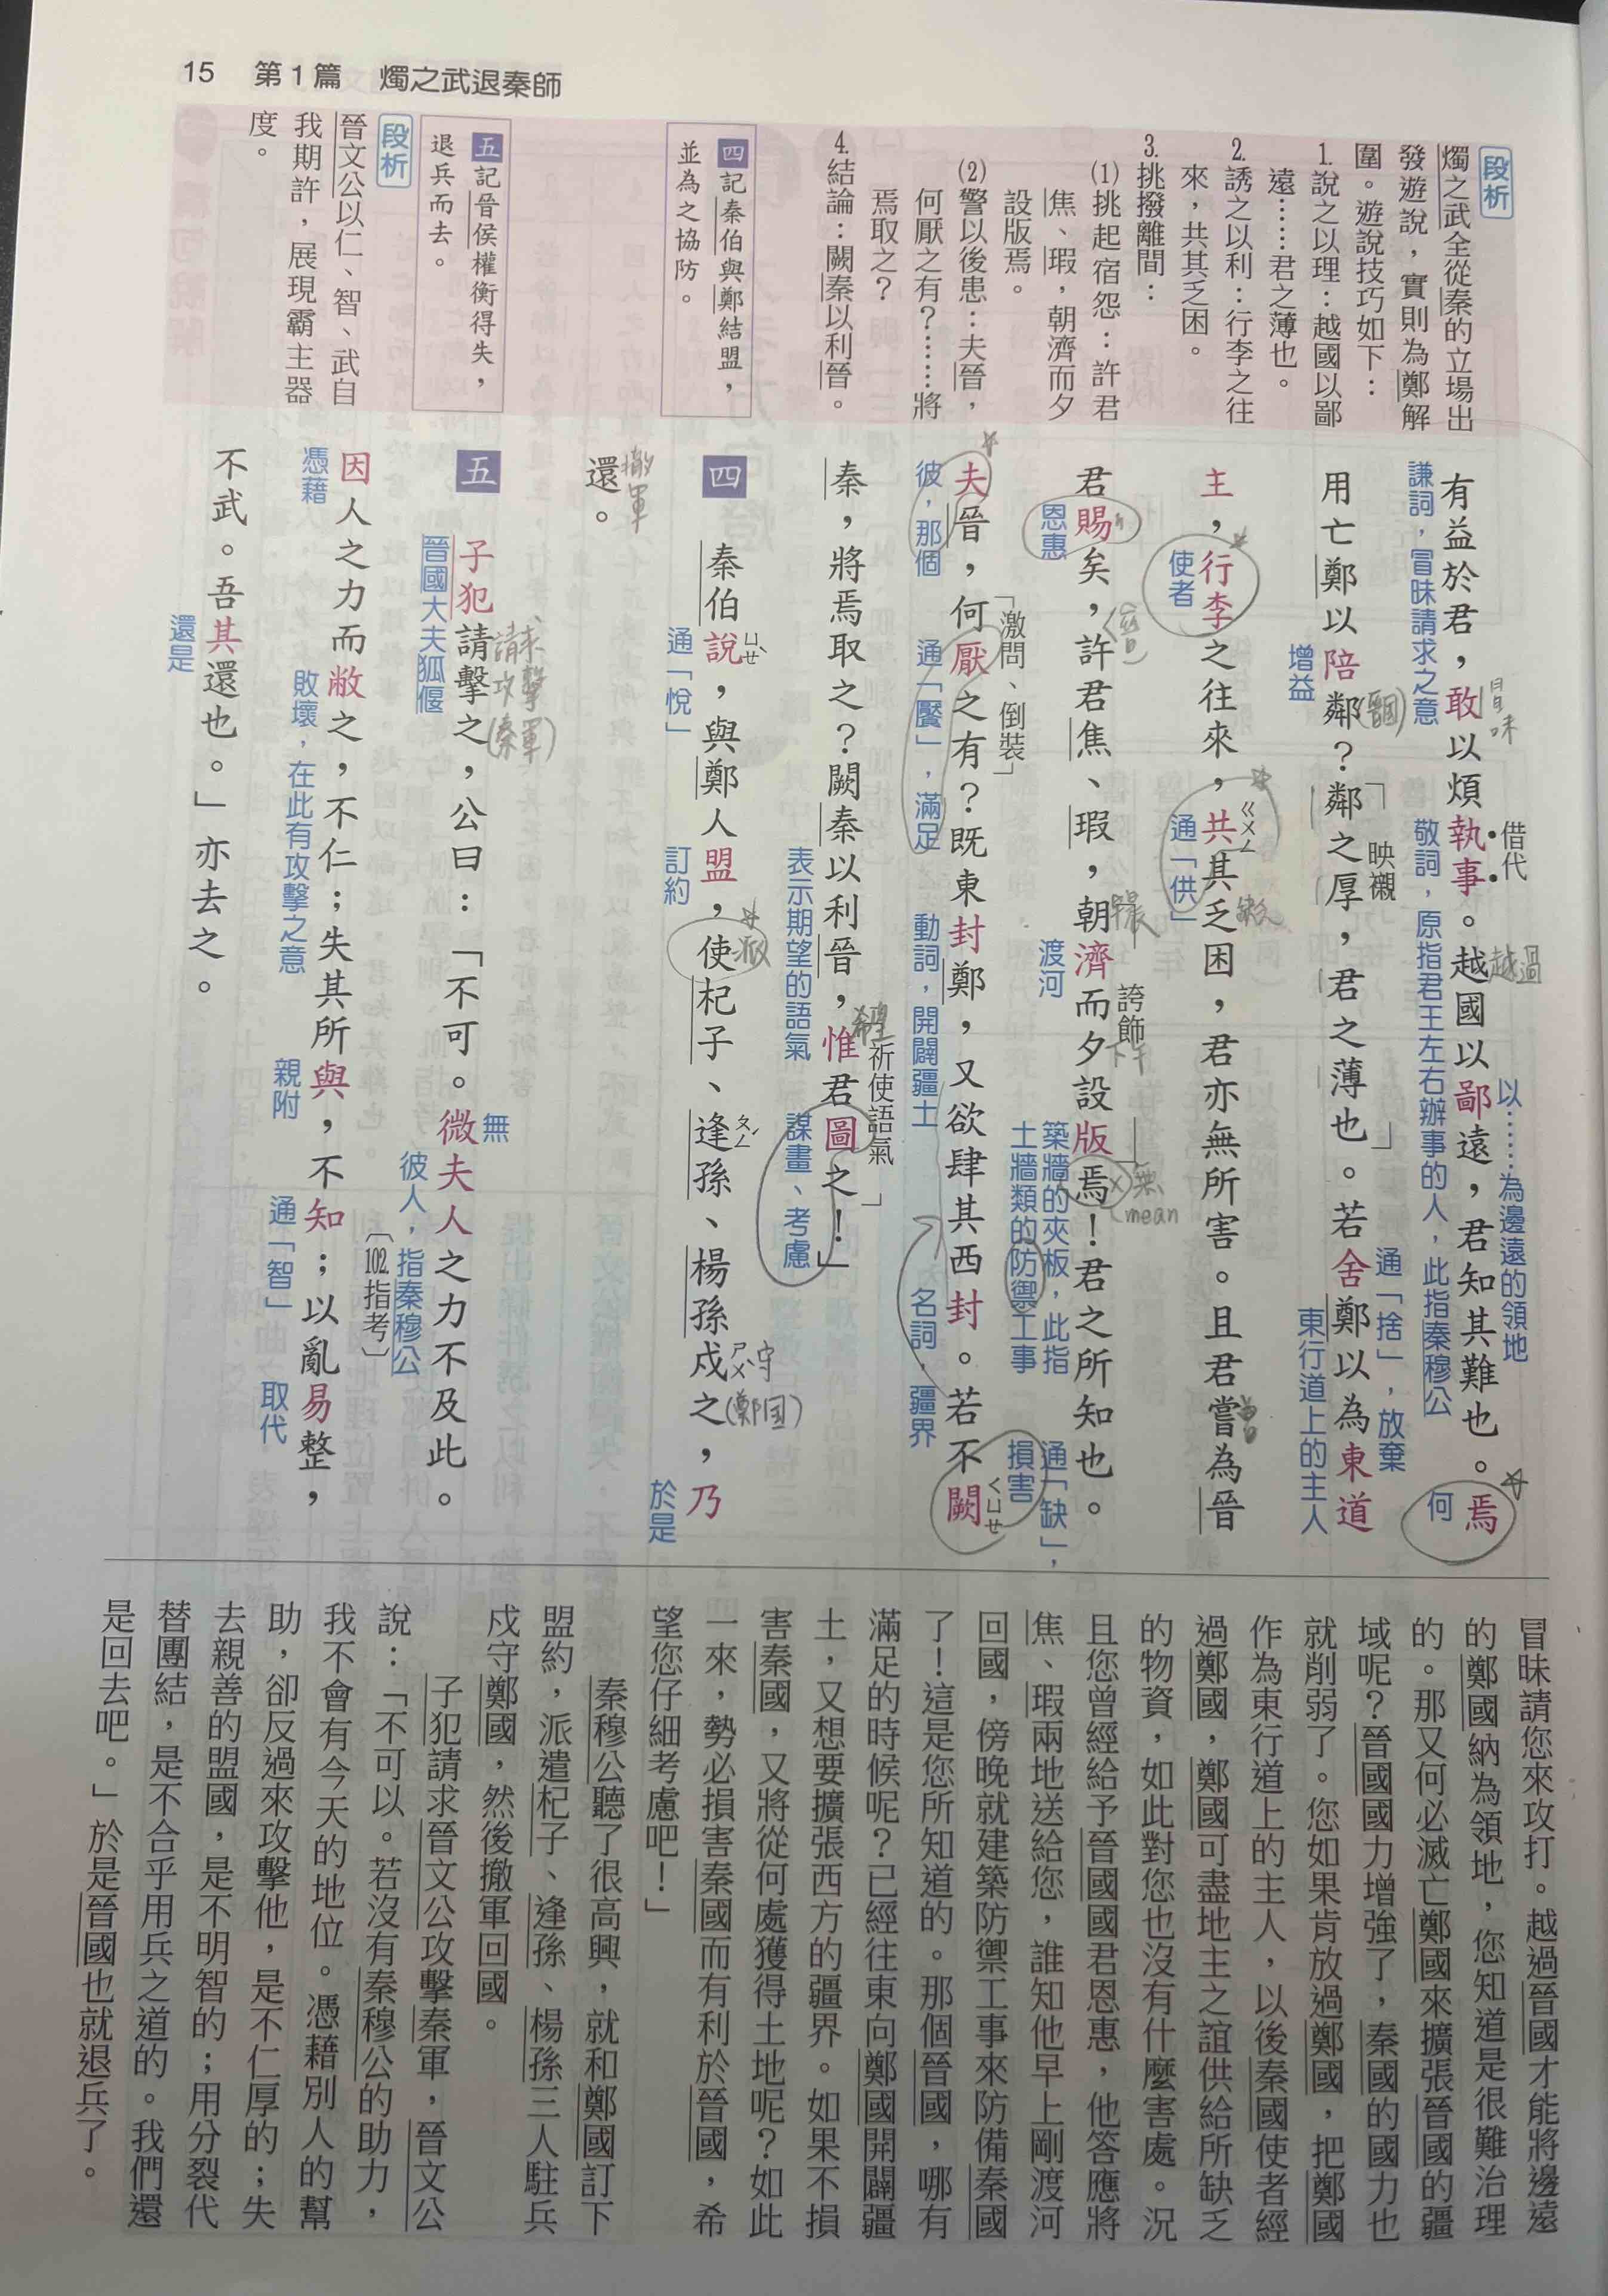 15 第1篇 燭之武退秦師
段析
燭之武全從秦的立場出
發遊說，實則為鄭解
圍。遊說技巧如下：
1.說之以理：越國以鄙
遠……君之薄也。
2.誘之以利：行李之往
來，共其乏困。
3.挑撥離間：
(1)挑起宿怨：許君
焦、瑕，朝濟而夕
設版焉。
(2)警以後患：夫晉，
何厭之有？……將
焉取之？
4.結論：闕秦以利晉。
四 記秦伯與鄭結盟，
並為之協防。
五 記晉侯權衡得失，
退兵而去。
段析
晉文公以仁、智、武自
我期許，展現霸主器
度。
借代
以……為邊遠的領地
有益於君，敢以煩執事。越國以鄙遠，君知其難也。焉
冒昧
越過
謙詞，冒昧請求之意
敬詞，原指君王左右辦事的人，此指秦穆公
何
「映襯」
通「捨」，放棄
用亡鄭以陪鄰？鄰之厚，君之薄也。若舍鄭以為東道
(晉國)
增益
東行道上的主人
主，行李之往來，共其乏困，君亦無所害。且君嘗為晉
ㄍㄨㄥ
缺乏
曾
使者
通「供」
「誇飾」
君賜矣，許君焦、瑕，朝濟而夕設版焉！君之所知也。
早晨
下午
無
mean
恩惠
渡河
築牆的夾板，此指
土牆類的防禦工事
通「缺」，
損害
「激問、倒裝」
夫晉，何厭之有？既東封鄭，又欲肆其西封。若不闕
ㄑㄩㄝ
彼，那個
通「饜」，滿足
動詞，開闢疆土
名詞，疆界
「祈使語氣」
秦，將焉取之？闕秦以利晉，惟君圖之！」
希望
表示期望的語氣
謀畫、考慮
四 秦伯說，與鄭人盟，使杞子、逢孫、楊孫戍之，乃
ㄩㄝˋ
派
ㄆㄥˊ
ㄕㄨˋ
守
(鄭國)
通「悅」
訂約
於是
還。
撤軍
五 子犯請擊之，公曰：「不可。微夫人之力不及此。
請求
攻擊
(秦軍)
無
晉國大夫狐偃
彼人，指秦穆公
〔102.指考〕
因人之力而敝之，不仁；失其所與，不知；以亂易整，
憑藉
敗壞，在此有攻擊之意
親附
通「智」
取代
不武。吾其還也。」亦去之。
還是
冒昧請您來攻打。越過晉國才能將邊遠
的鄭國納為領地，您知道是很難治理
的。那又何必滅亡鄭國來擴張晉國的疆
域呢？晉國國力增強了，秦國的國力也
就削弱了。您如果肯放過鄭國，把鄭國
作為東行道上的主人，以後秦國使者經
過鄭國，鄭國可盡地主之誼供給所缺乏
的物資，如此對您也沒有什麼害處。況
且您曾經給予晉國國君恩惠，他答應將
焦、瑕兩地送給您，誰知他早上剛渡河
回國，傍晚就建築防禦工事來防備秦國
了！這是您所知道的。那個晉國，哪有
滿足的時候呢？已經往東向鄭國開闢疆
土，又想要擴張西方的疆界。如果不損
害秦國，又將從何處獲得土地呢？如此
一來，勢必損害秦國而有利於晉國，希
望您仔細考慮吧！」
秦穆公聽了很高興，就和鄭國訂下
盟約，派遣杞子、逢孫、楊孫三人駐兵
戍守鄭國，然後撤軍回國。
子犯請求晉文公攻擊秦軍，晉文公
說：「不可以。若沒有秦穆公的助力，
我不會有今天的地位。憑藉別人的幫
助，卻反過來攻擊他，是不仁厚的；失
去親善的盟國，是不明智的；用分裂代
替團結，是不合乎用兵之道的。我們還
是回去吧。」於是晉國也就退兵了。